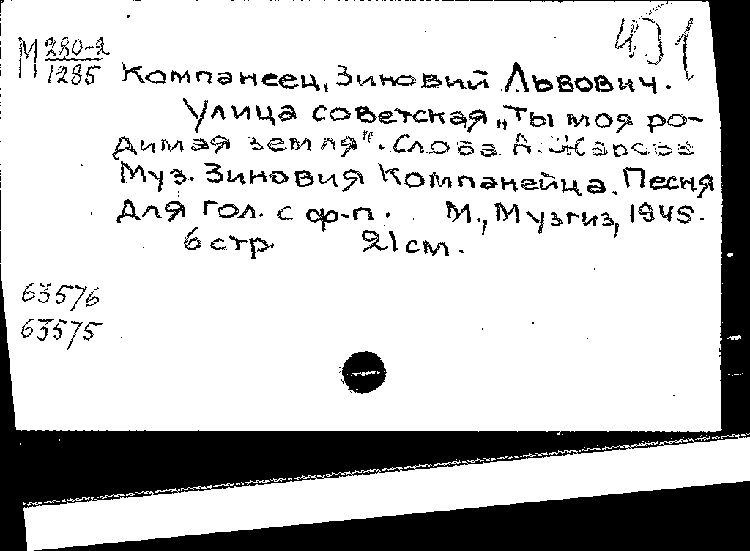 451
М 280-2
1285
Компанеец, Зиновий Львович.
Улица советская „Ты моя ро-
димая земля". Слова А. Жарова
Муз. Зиновия Компанейца. Песня
для гол. с ф-п. М., Музгиз, 1945.
6 стр. 21 см.
63576
63575